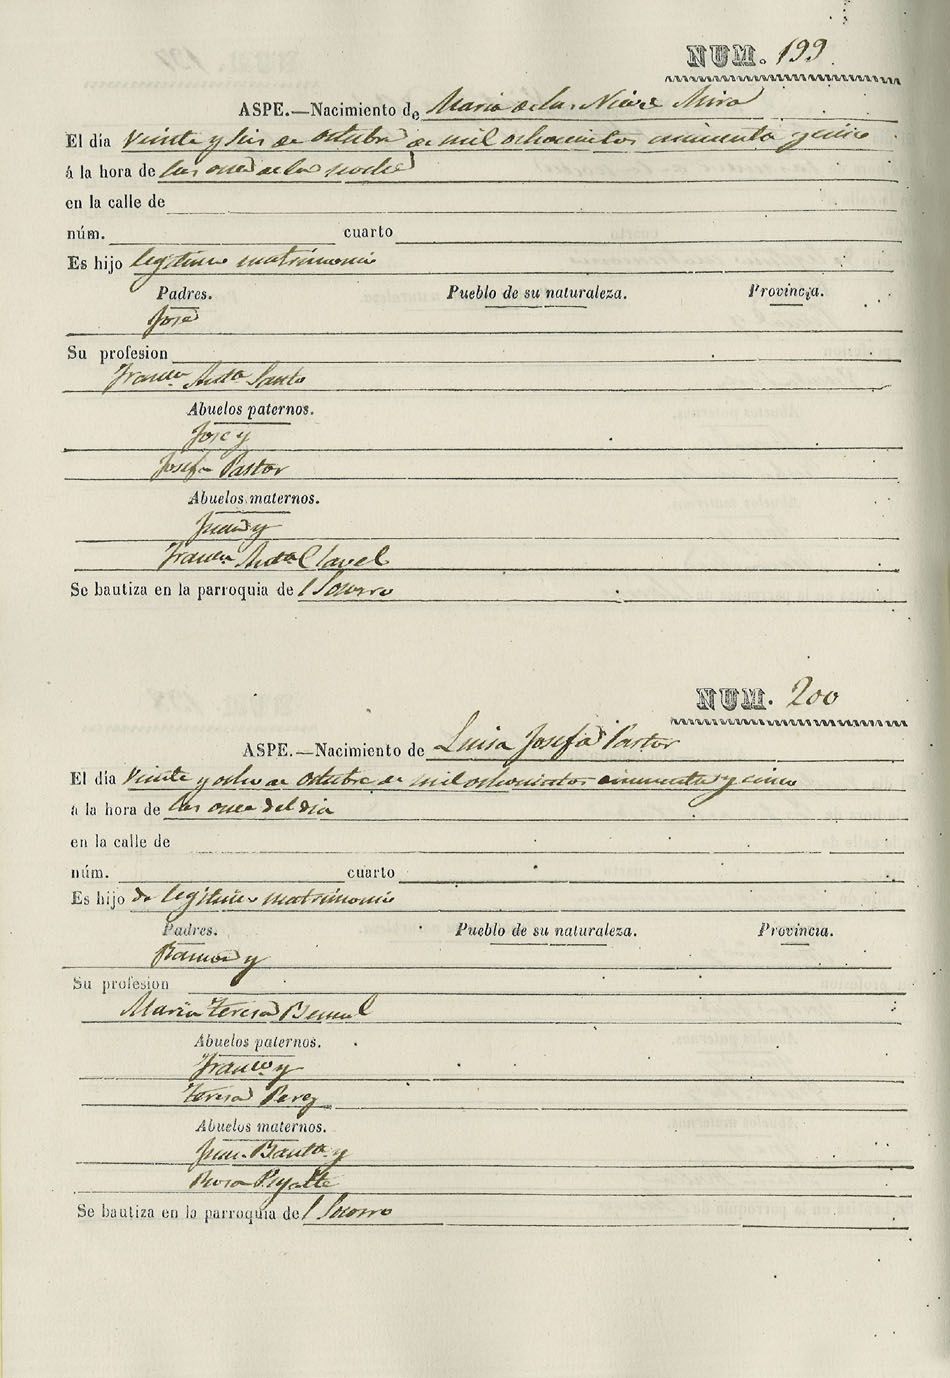 NUM. 199
ASPE.—Nacimiento de Maria de las Nieves Mira
El día Veinte y seis de Octubre de mil ochocientos cincuenta y cinco
á la hora de las once de la noche
en la calle de
núm. cuarto
Es hijo legitimo matrimonio
Padres. Pueblo de su naturaleza. Provincia.
Jose
Su profesion
Franca. Anta. Santo
Abuelos paternos.
Jose y
Josefa Pastor
Abuelos maternos.
Juan y
Franca. Anta. Clavel
Se bautiza en la parroquia del Socorro
NUM. 200
ASPE.—Nacimiento de Luisa Josefa Pastor
El día Veinte y ocho de Octubre de mil ochocientos cincuenta y cinco
á la hora de las once del dia
en la calle de
núm. cuarto
Es hijo de legitimo matrimonio
Padres. Pueblo de su naturaleza. Provincia.
Ramon y
Su profesion
Maria Teresa
Abuelos paternos.
Franco. y
Teresa Perez
Abuelos maternos.
Juan Bauta. y
Rosa
Se bautiza en la parroquia del Socorro